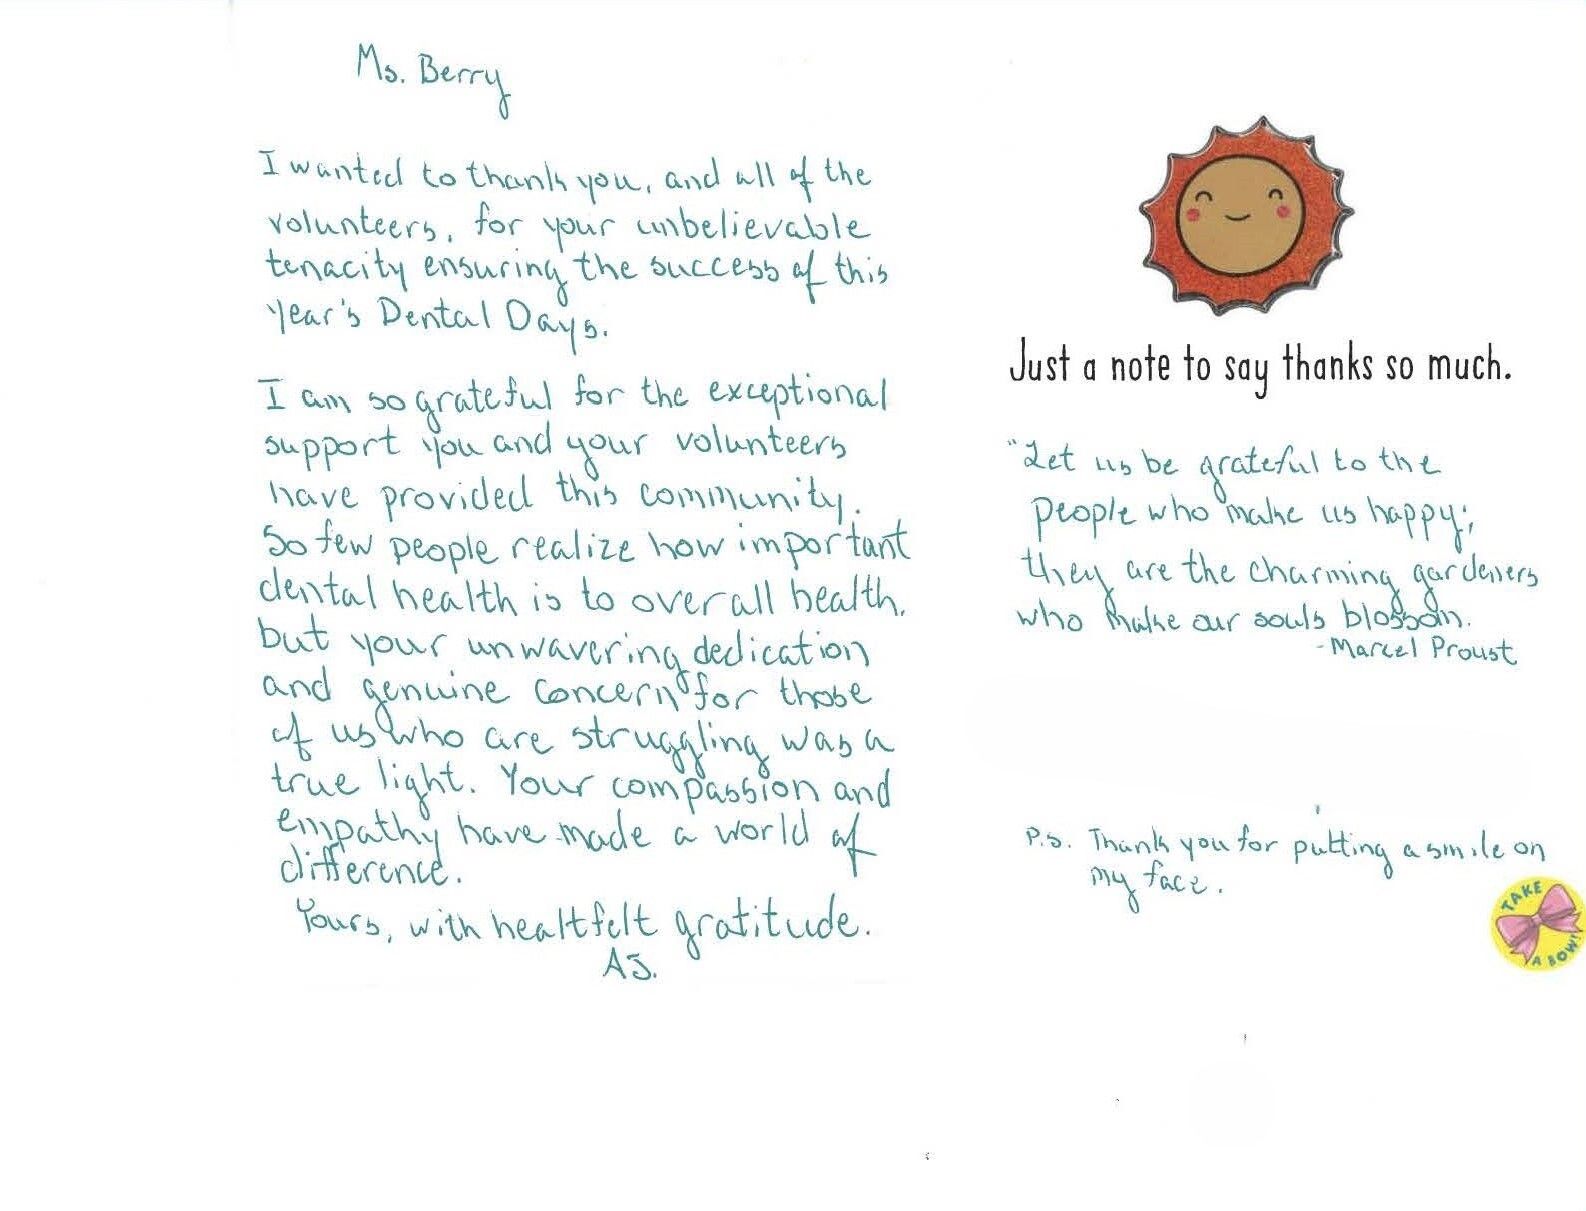 Ms. Berry
I wanted to thank you, and all of the
volunteers, for your unbelievable
tenacity ensuring the success of this
year's Dental Days.
I am so grateful for the exceptional
support you and your volunteers
have provided this community.
So few people realize how important
dental health is to overall health,
but your unwavering dedication
and genuine concern for those
of us who are struggling was a
true light. Your compassion and
empathy have made a world of
difference.
Yours, with heartfelt gratitude.
AJ.
Just a note to say thanks so much.
"Let us be grateful to the
people who make us happy;
they are the charming gardeners
who make our souls blossom.
-Marcel Proust
P.S. Thank you for putting a smile on
my face.
TAKE
A BOW!